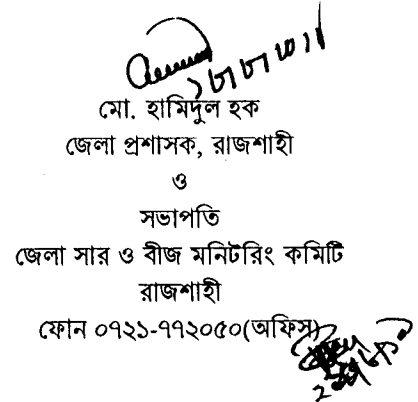 মো. হামিদুল হক
জেলা প্রশাসক, রাজশাহী
ও
সভাপতি
জেলা সার ও বীজ মনিটরিং কমিটি
রাজশাহী
ফোন ০৭২১-৭৭২০৫০(অফিস)